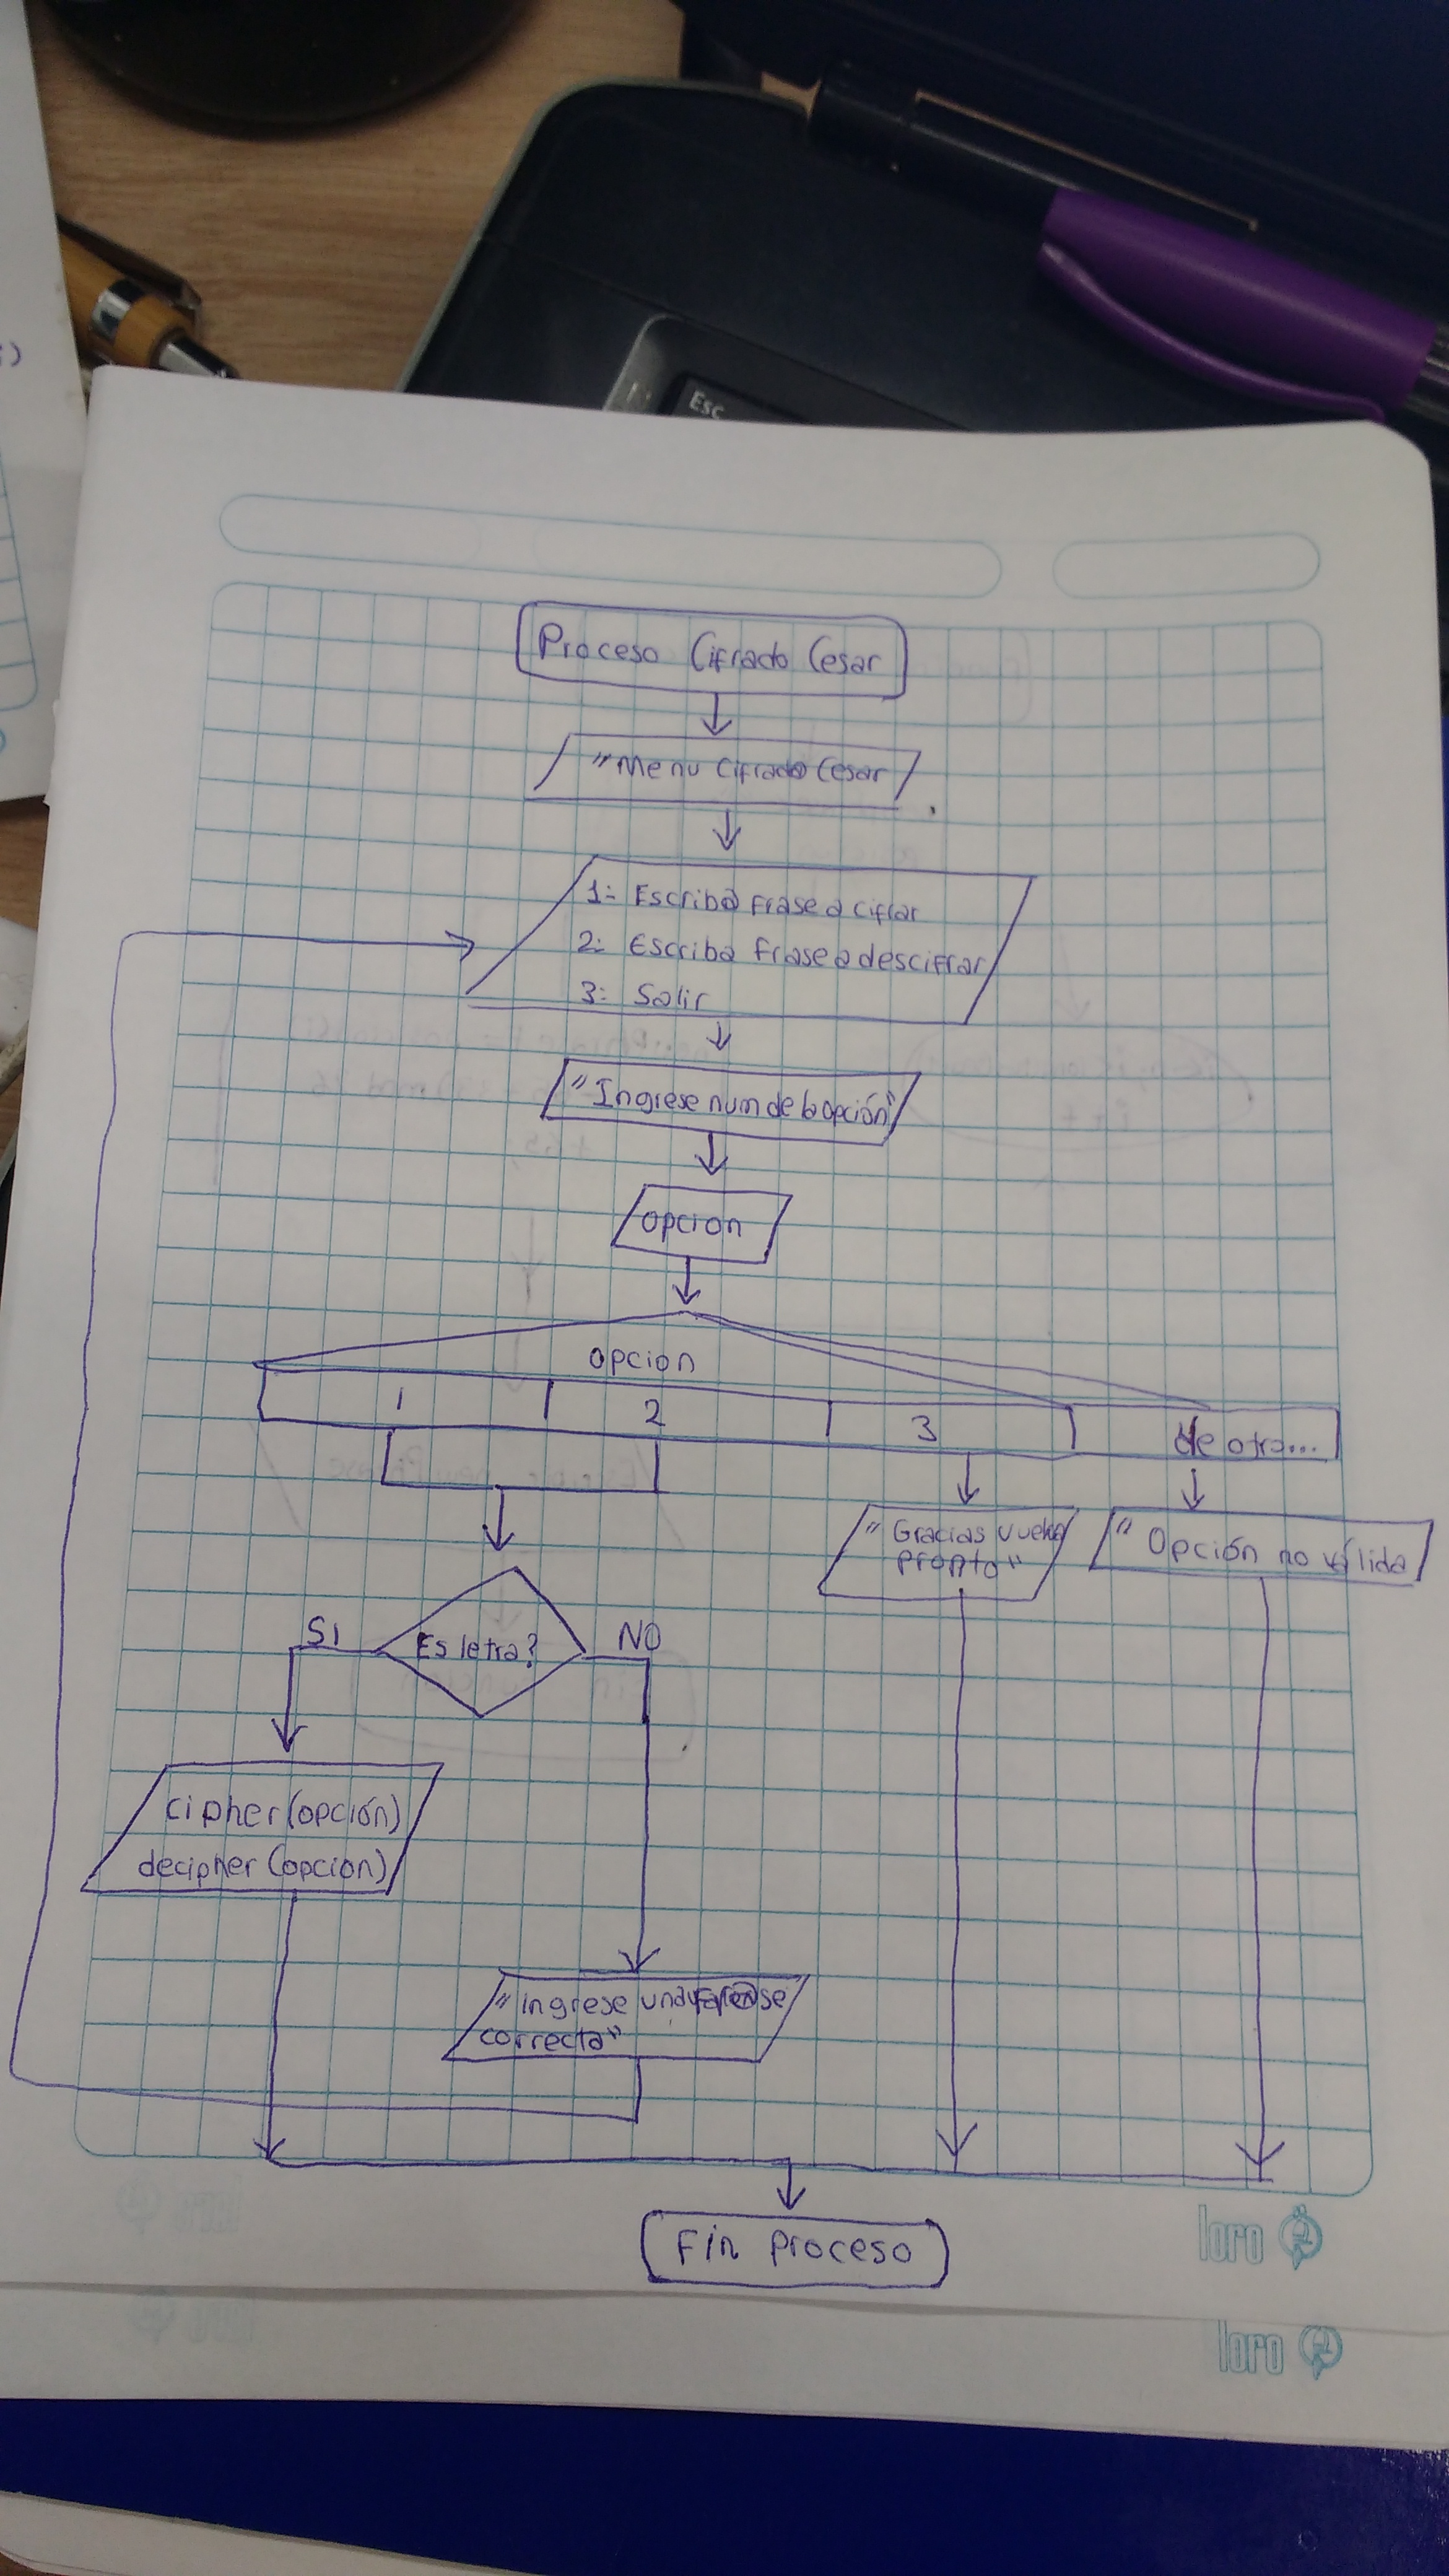 Esc
Proceso Cifrado Cesar
"Menu Cifrado Cesar
1: Escriba frase a cifrar
2: Escriba frase a descifrar
3: Salir
"Ingrese num de la opción"
opcion
opcion
1
2
3
de otra...
"Gracias vuelva
pronto"
"Opción no válida
Es letra?
SI
NO
cipher(opción)
decipher(opcion)
"Ingrese una
correcta"
Fin proceso
loro
loro